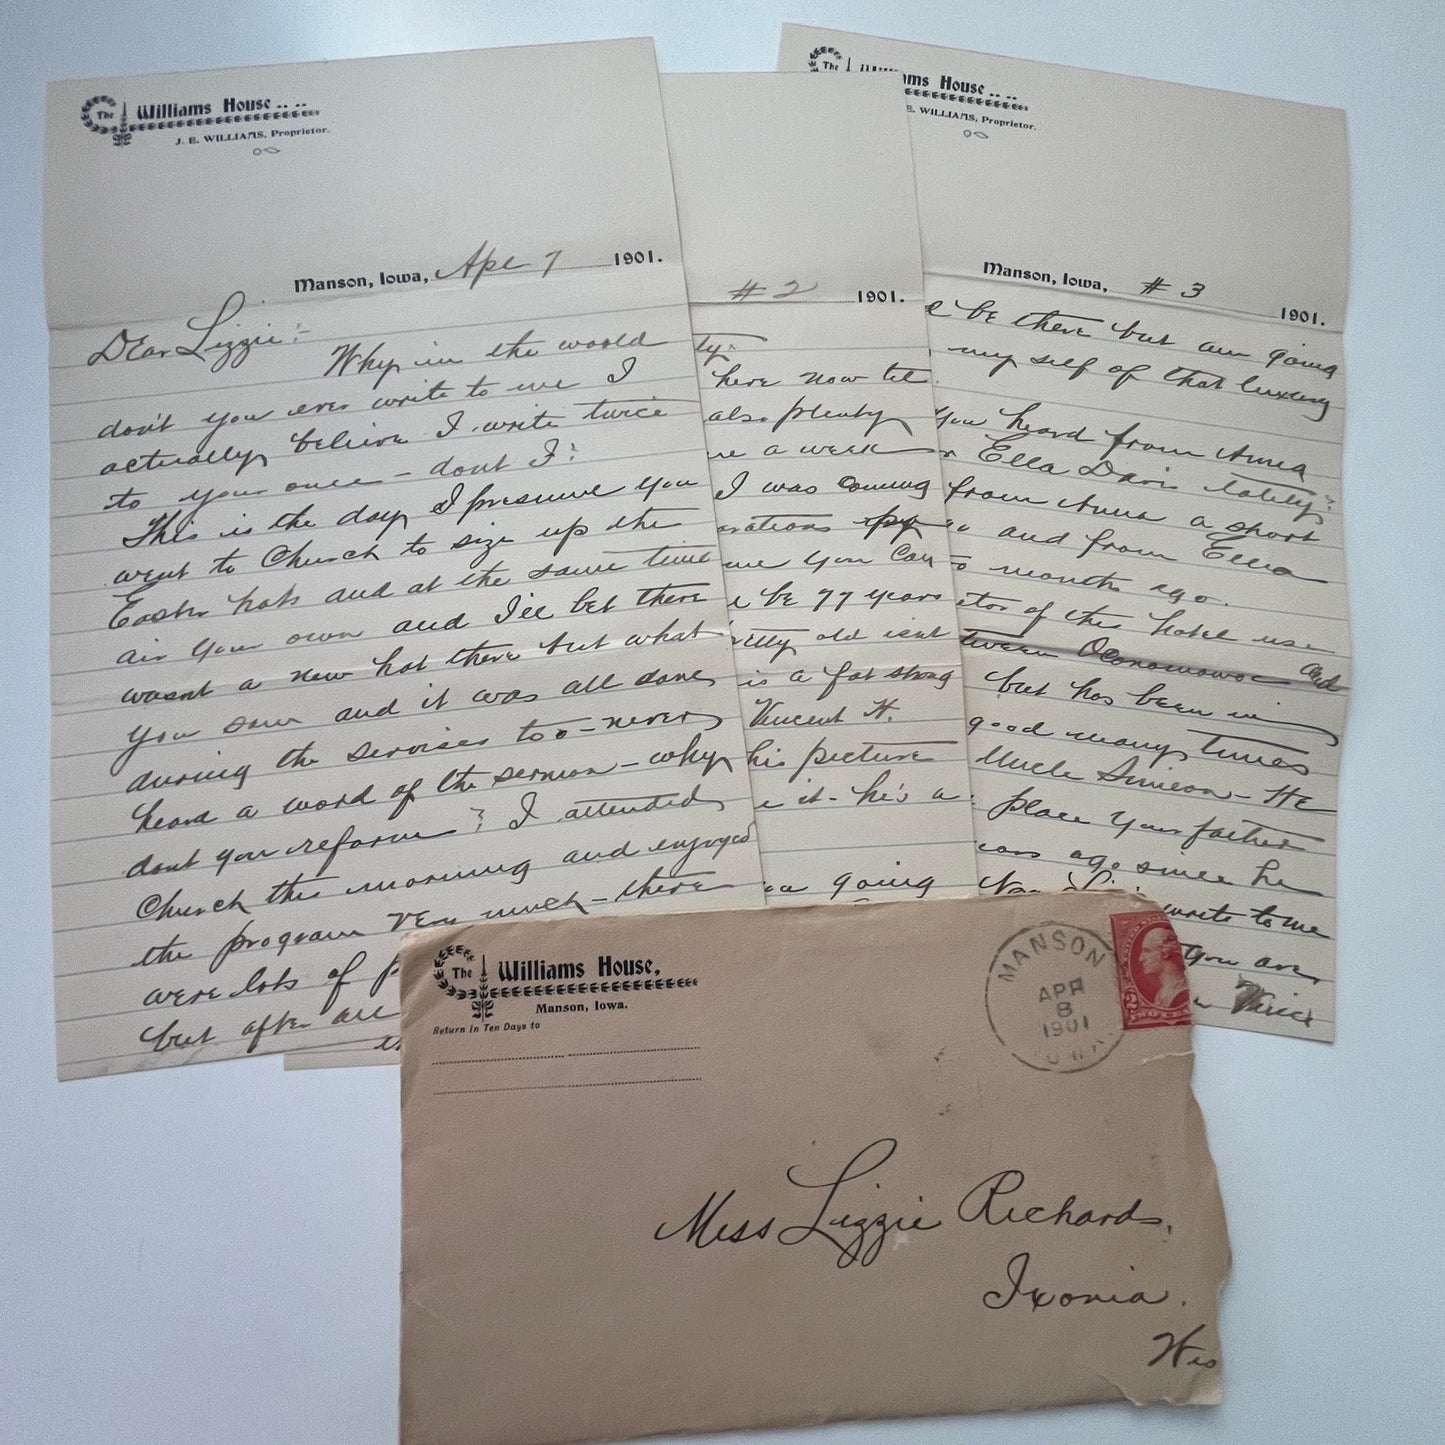 The Williams House....
J. E. WILLIAMS, Proprietor.
Manson, Iowa, Apr 7 1901.
Dear Lizzie:-
Why in the world
don't you ever write to me I
actually believe I write twice
to your once - dont I?
This is the day I presume you
went to Church to size up the
Easter hats and at the same time
air your own and I'll bet there
wasnt a new hat there but what
you saw and it was all done
during the services too - never
heard a word of the sermon - why
dont you reform? I attended
Church this morning and enjoyed
the program very much - there
were lots of
but after all
#2 1901.
ty:
here now til
also plenty
a week
I was coming
me you can
be 77 years
old isnt
is a fat strong
Vincent H.
his picture
it - he's a
going
The Williams House....
E. WILLIAMS, Proprietor.
Manson, Iowa, #3 1901.
be there but am going
my self of that luxury
you heard from Anna
Ella Davis lately?
from Anna a short
and from Ella
months ago.
of this hotel use
tween Oconomowoc and
but has been in
good many times
Uncle Simeon - He
place your father
ears ago since he
write to me
you are
The Williams House,
Manson, Iowa.
Return in Ten Days to
MANSON
APR
8
1901
IOWA
TWO CENTS
Miss Lizzie Richards,
Ixonia.
Wis